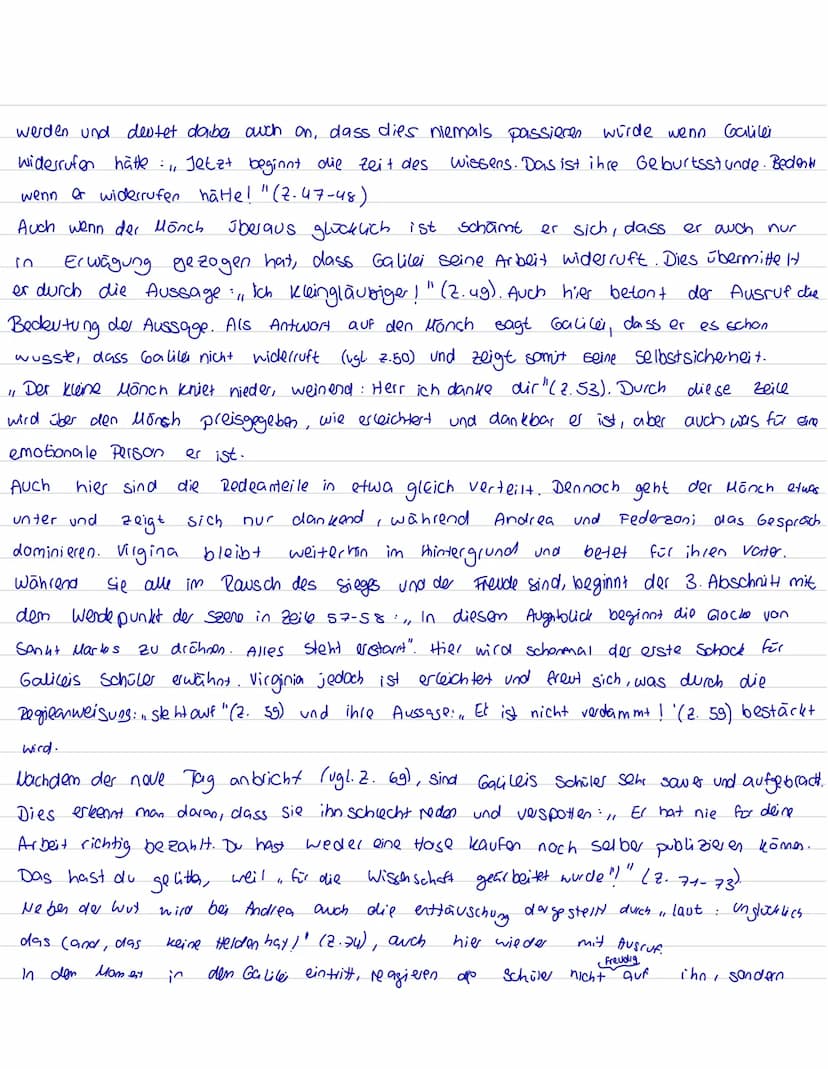 werden und deutet dabei auch an, dass dies niemals passieren würde wenn Galilei
widerrufen hätte: „ Jetzt beginnt die Zeit des Wissens. Das ist ihre Geburtsstunde. Bedenk
wenn er widerrufen hätte! " (Z. 47-48)
Auch wenn der Mönch überaus glücklich ist schämt er sich, dass er auch nur
in Erwägung gezogen hat, dass Galilei seine Arbeit widerruft. Dies übermittelt
er durch die Aussage: „ Ich Kleingläubiger! " (Z. 49). Auch hier betont der Ausruf die
Bedeutung der Aussage. Als Antwort auf den Mönch sagt Galilei, dass er es schon
wusste, dass Galilei nicht widerruft (vgl. Z. 50) und zeigt somit seine Selbstsicherheit.
„ Der kleine Mönch kniet nieder, weinend : Herr ich danke dir " (Z. 53). Durch diese Zeile
wird über den Mönch preisgegeben, wie erleichtert und dankbar er ist, aber auch was für eine
emotionale Person er ist.
Auch hier sind die Redeanteile in etwa gleich verteilt. Dennoch geht der Mönch etwas
unter und zeigt sich nur dankend, während Andrea und Federzoni das Gespräch
dominieren. Virgina bleibt weiterhin im Hintergrund und betet für ihren Vater.
Während sie alle im Rausch des Sieges und der Freude sind, beginnt der 3. Abschnitt mit
dem Wendepunkt der Szene in Zeile 57-58 : „ In diesem Augenblick beginnt die Glocke von
Sankt Markus zu dröhnen. Alles steht erstarrt". Hier wird schonmal der erste Schock für
Galileis Schüler erwähnt. Virginia jedoch ist erleichtert und freut sich, was durch die
Regieanweisung: „ steht auf " (Z. 59) und ihre Aussage: „ Er ist nicht verdammt ! " (Z. 59) bestäckt
wird.
Nachdem der neue Tag anbricht (vgl. Z. 69), sind Galileis Schüler sehr sauer und aufgebracht.
Dies erkennt man daran, dass sie ihn schlecht reden und verspotten : „ Er hat nie für deine
Arbeit richtig bezahlt. Du hast weder eine Hose kaufen noch selber publizieren können.
Das hast du gelitten, weil „ für die Wissenschaft gearbeitet wurde"! " (Z. 71-73)
Neben der Wut wird bei Andrea auch die enttäuschung dargestellt durch „ laut : Unglücklich
das Land, das keine Helden hat! " (Z. 74), auch hier wieder mit Ausruf.
In dem Moment in dem Galilei eintritt, reagieren die Schüler nicht freudig auf ihn, sondern